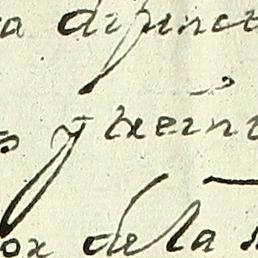 a difunct
s y treint
ox de la